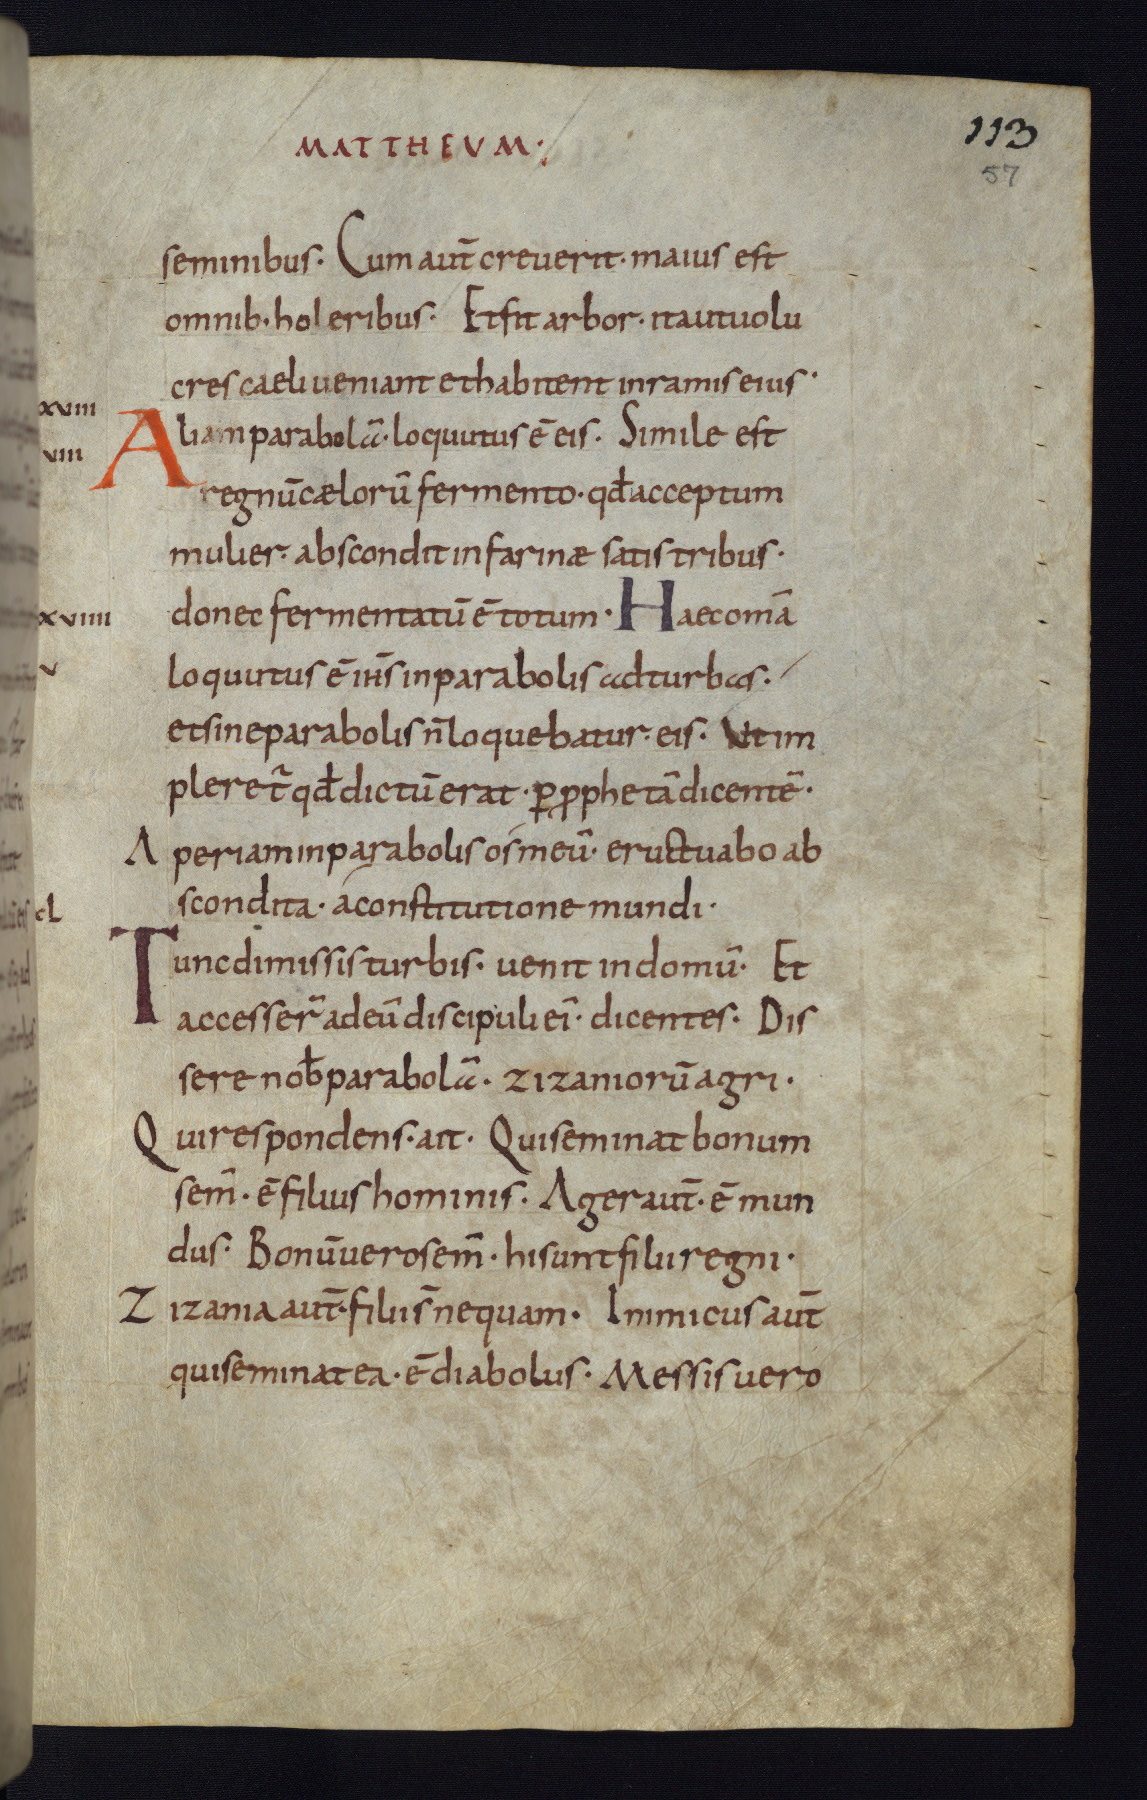 MATTHEUM·
113
57
seminibus· Cum aut̄ creverit· maius est
omnib· holeribus· Et fit arbor· ita ut volu
cres caeli veniant et habitent in ramis eius·
xviii
Aliam parabolā· loquutus ē eis· Simile est
viii
regnū cælorū fermento· qđ acceptum
mulier· abscondit in farinæ satis tribus·
donec fermentatū ē totum· Haec omā
xviiii
loquutus ē ih̄s in parabolis ad turbas·
v
et sine parabolis n̄ loquebatur eis· Ut im
pleret᷑ qđ dictū erat· ꝑ ꝓphetā dicentē·
Aperiam in parabolis os meū· eructuabo ab
scondita· a constitutione mundi·
cL
Tunc dimissis turbis· venit in domū· Et
accesser̄ ad eū discipuli ei᷑· dicentes· Dis
sere nob̄ parabolā· zizaniorū agri·
Qui respondens· ait· Qui seminat bonum
sem̄· ē filius hominis· Ager aut̄· ē mun
dus· Bonū vero sem̄· hi sunt filii regni·
Zizania aut̄· filii s̄ nequam· Inimicus aut̄
qui seminat ea· ē diabolus· Messis vero